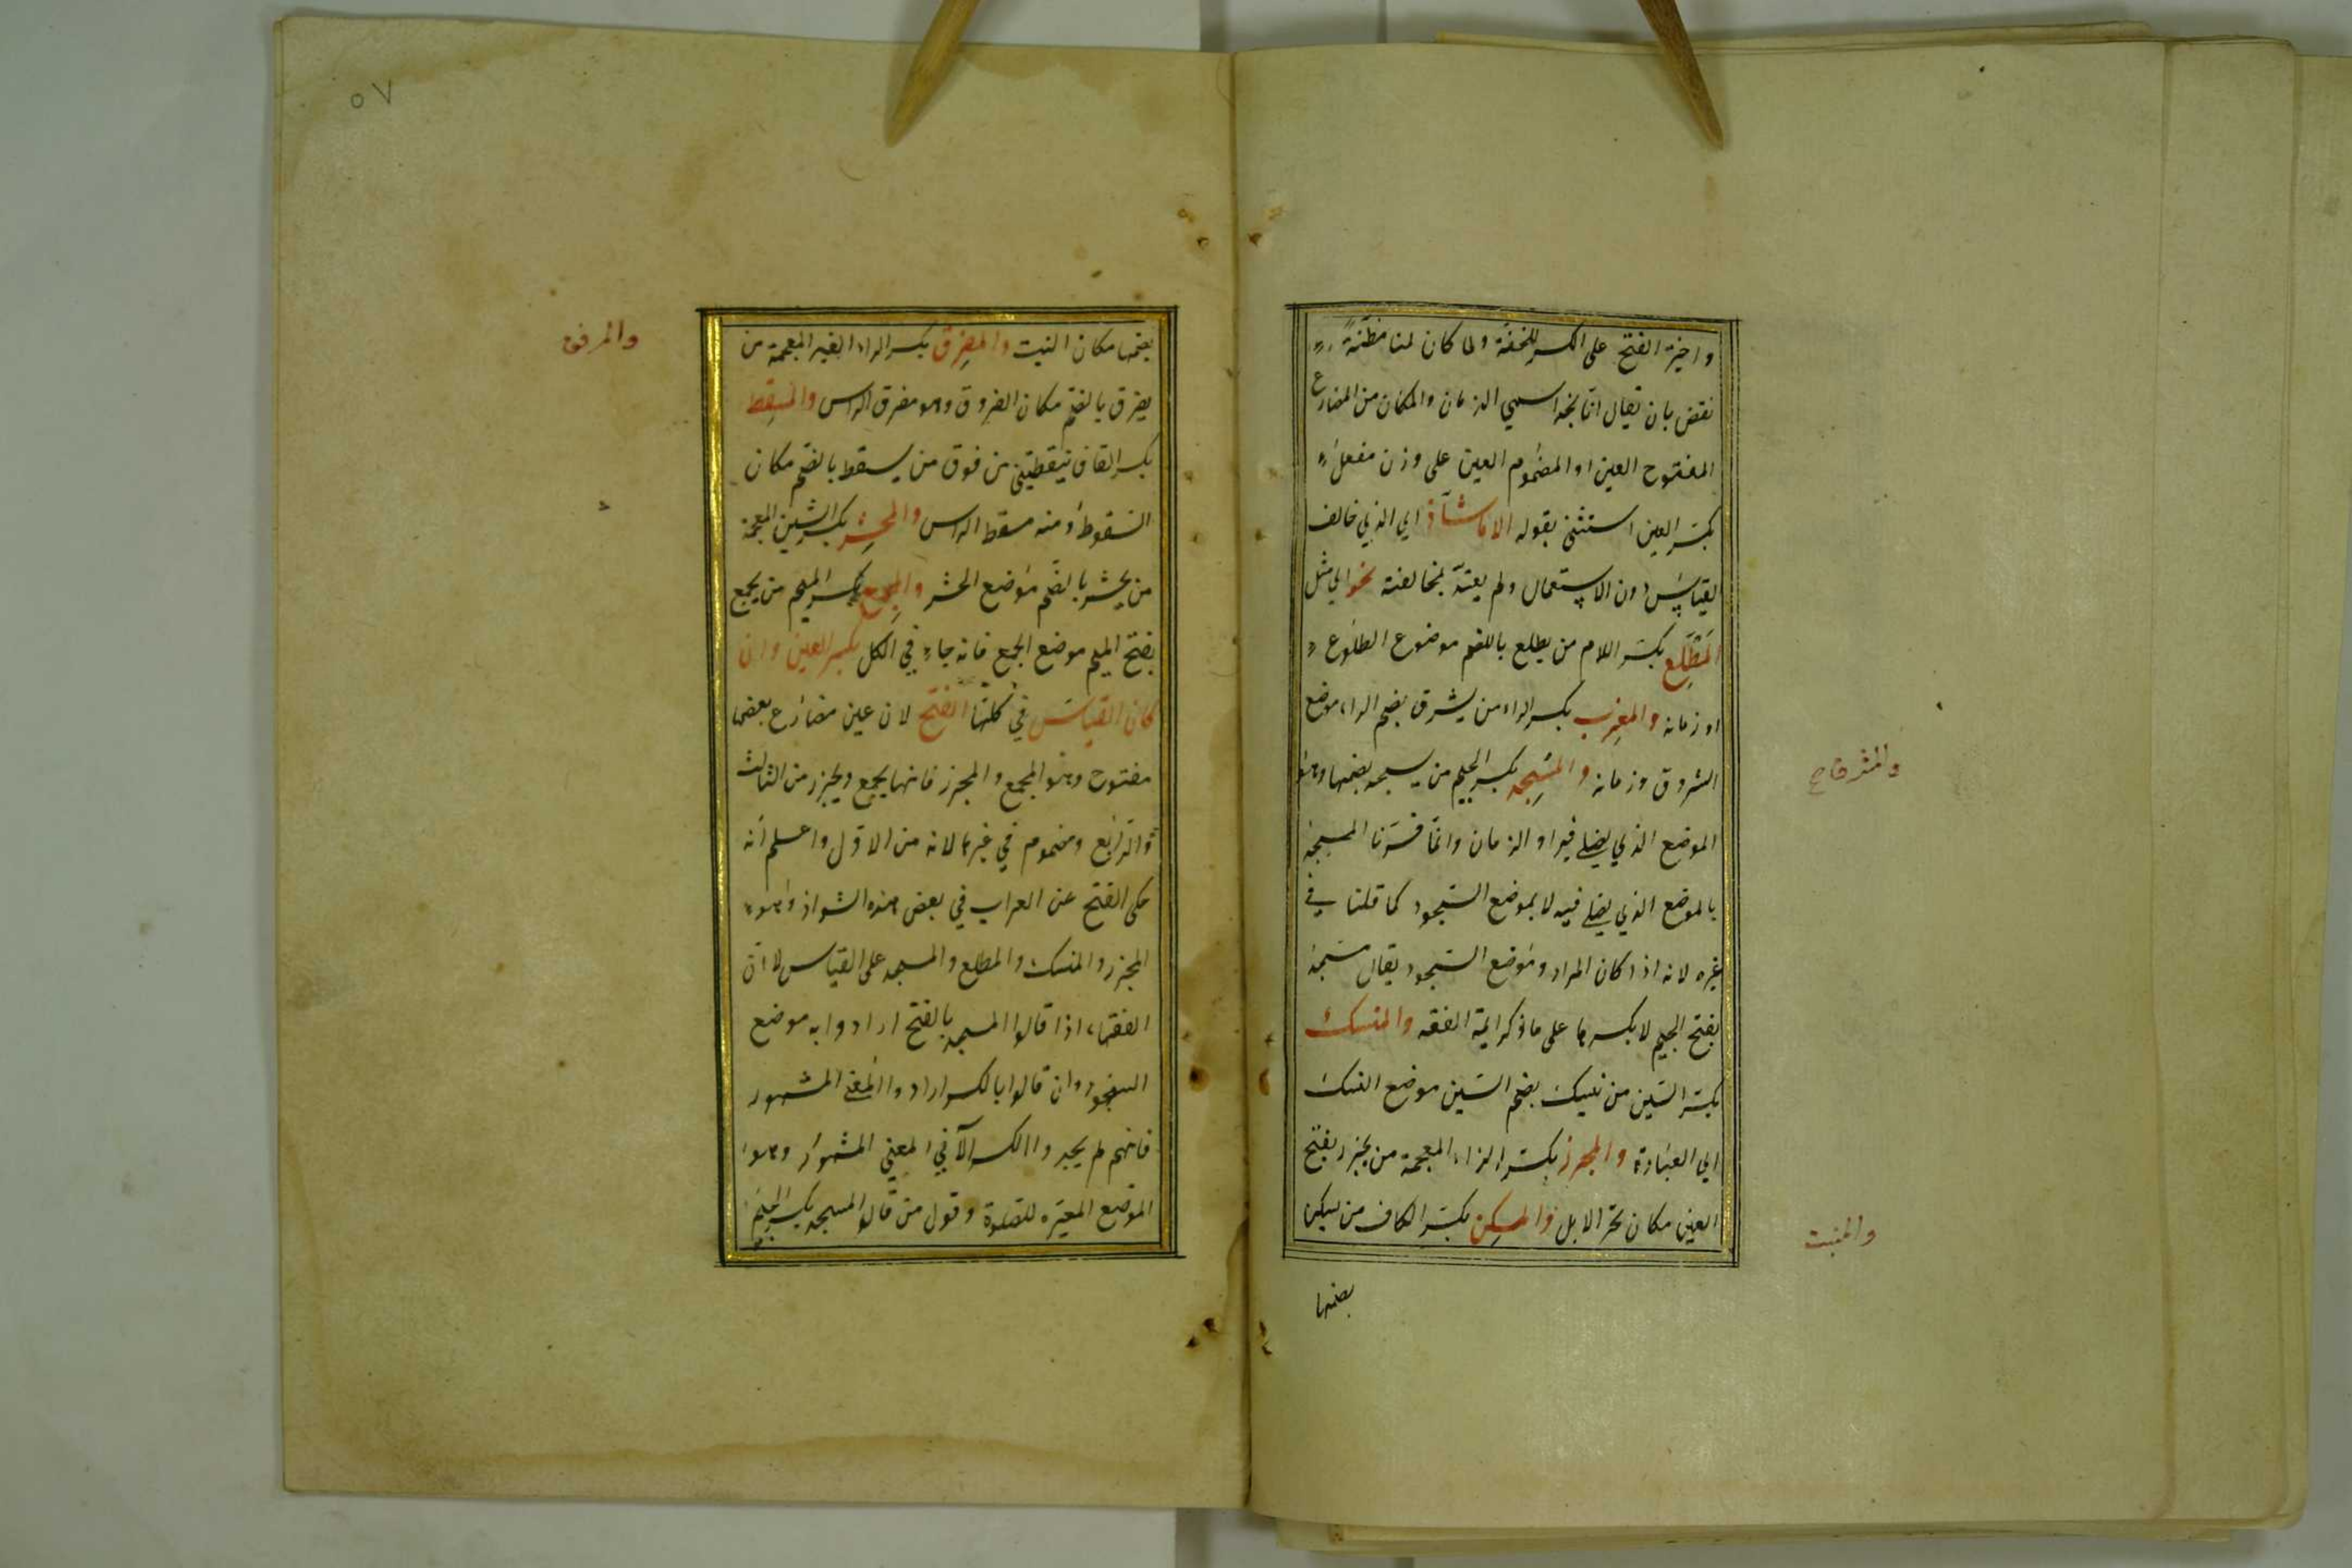 واختير الفتح على الكسر للخفة ولما كان لنا مظنة
نقض بان يقال انا نجد اسمي الزمان والمكان من المضارع
المفتوح العين او المضموم العين على وزن مفعل
بكسر العين استثنى بقوله الا ما شاذ اي الذي خالف
القياس دون الاستعمال ولم يعتد لمخالفته نحو اي مثل
المطلع بكسر اللام من يطلع بالضم موضوع الطلوع
او زمانه والمغرب بكسر الراء من يشرق بضم الراء موضع
الشروق وزمانه والمسجد بكسر الجيم من يسجد بضمها وهو
الموضع الذي يصلى فيه او الزمان وانما فسرنا المسجد
بالموضع الذي يصلى فيه لا بموضع السجود كما قلنا في
غيره لانه اذا كان المراد وموضع السجود يقال مسجد
بفتح الجيم لا بكسرها على ما ذكر ايمة الفقه والمنسك
بكسر السين من ينسك بضم السين موضع النسك
اي العبادة والمجزر بكسر الزاء المعجمة من يجزر بفتح
العين مكان نحر الابل والمسكن بكسر الكاف من يسكن
بضمها
والمشرق
والمنبت
٥٧
بضمها مكان النبت والمفرق بكسر الراء الغير المعجمة من
يفرق بالضم مكان الفروق وهو مفرق الراس والمسقط
بكسر القاف بنقطتين من فوق من يسقط بالضم مكان
السقوط ومنه مسقط الراس والمحشر بكسر الشين المعجمة
من يحشر بالضم موضع الحشر والمجمع بكسر الميم من يجمع
بفتح الميم موضع الجمع فانه جاء في الكل بكسر العين وان
كان القياس في كلها الفتح لان عين مضارع بعضها
مفتوح وهو المجمع والمجزر فانهما يجمع ويجزر من الثالث
والرابع ومضموم في غيرها لانه من الاول واعلم انه
حكى الفتح عن العراب في بعض هذه الشواذ وهو
المجزر والمنسك والمطلع والمسجد على القياس لا ان
الفقهاء اذا قالوا المسجد بالفتح ارادوا به موضع
السجود وان قالوا بالكسر ارادوا المعنى المشهور
فانهم لم يجيروا الكسر الا في المعنى المشهور وهو
الموضع المعتبره للصلوة وقول من قالوا المسجد بكسر الجيم
والمرفق